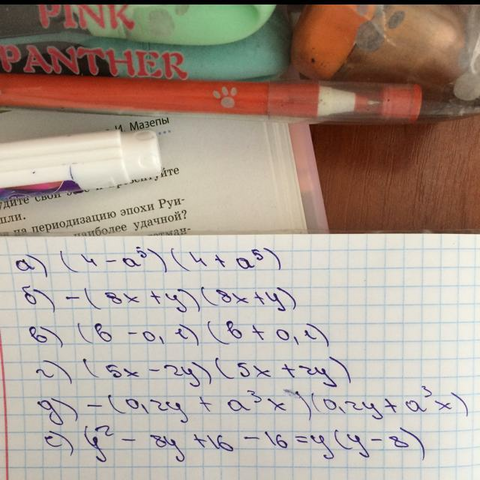 PINK
PANTHER
И. Мазепы
шли.
на периодизацию эпохи Руи-
наиболее удачной?
а) (4-a⁵)(4+a⁵)
б) -(8x+y)(8x+y)
в) (в-0,1)(в+0,1)
г) (5x-2y)(5x+2y)
д) -(0,2y+a³x)(0,2y+a³x)
е) (y²-8y+16-16=y(y-8)